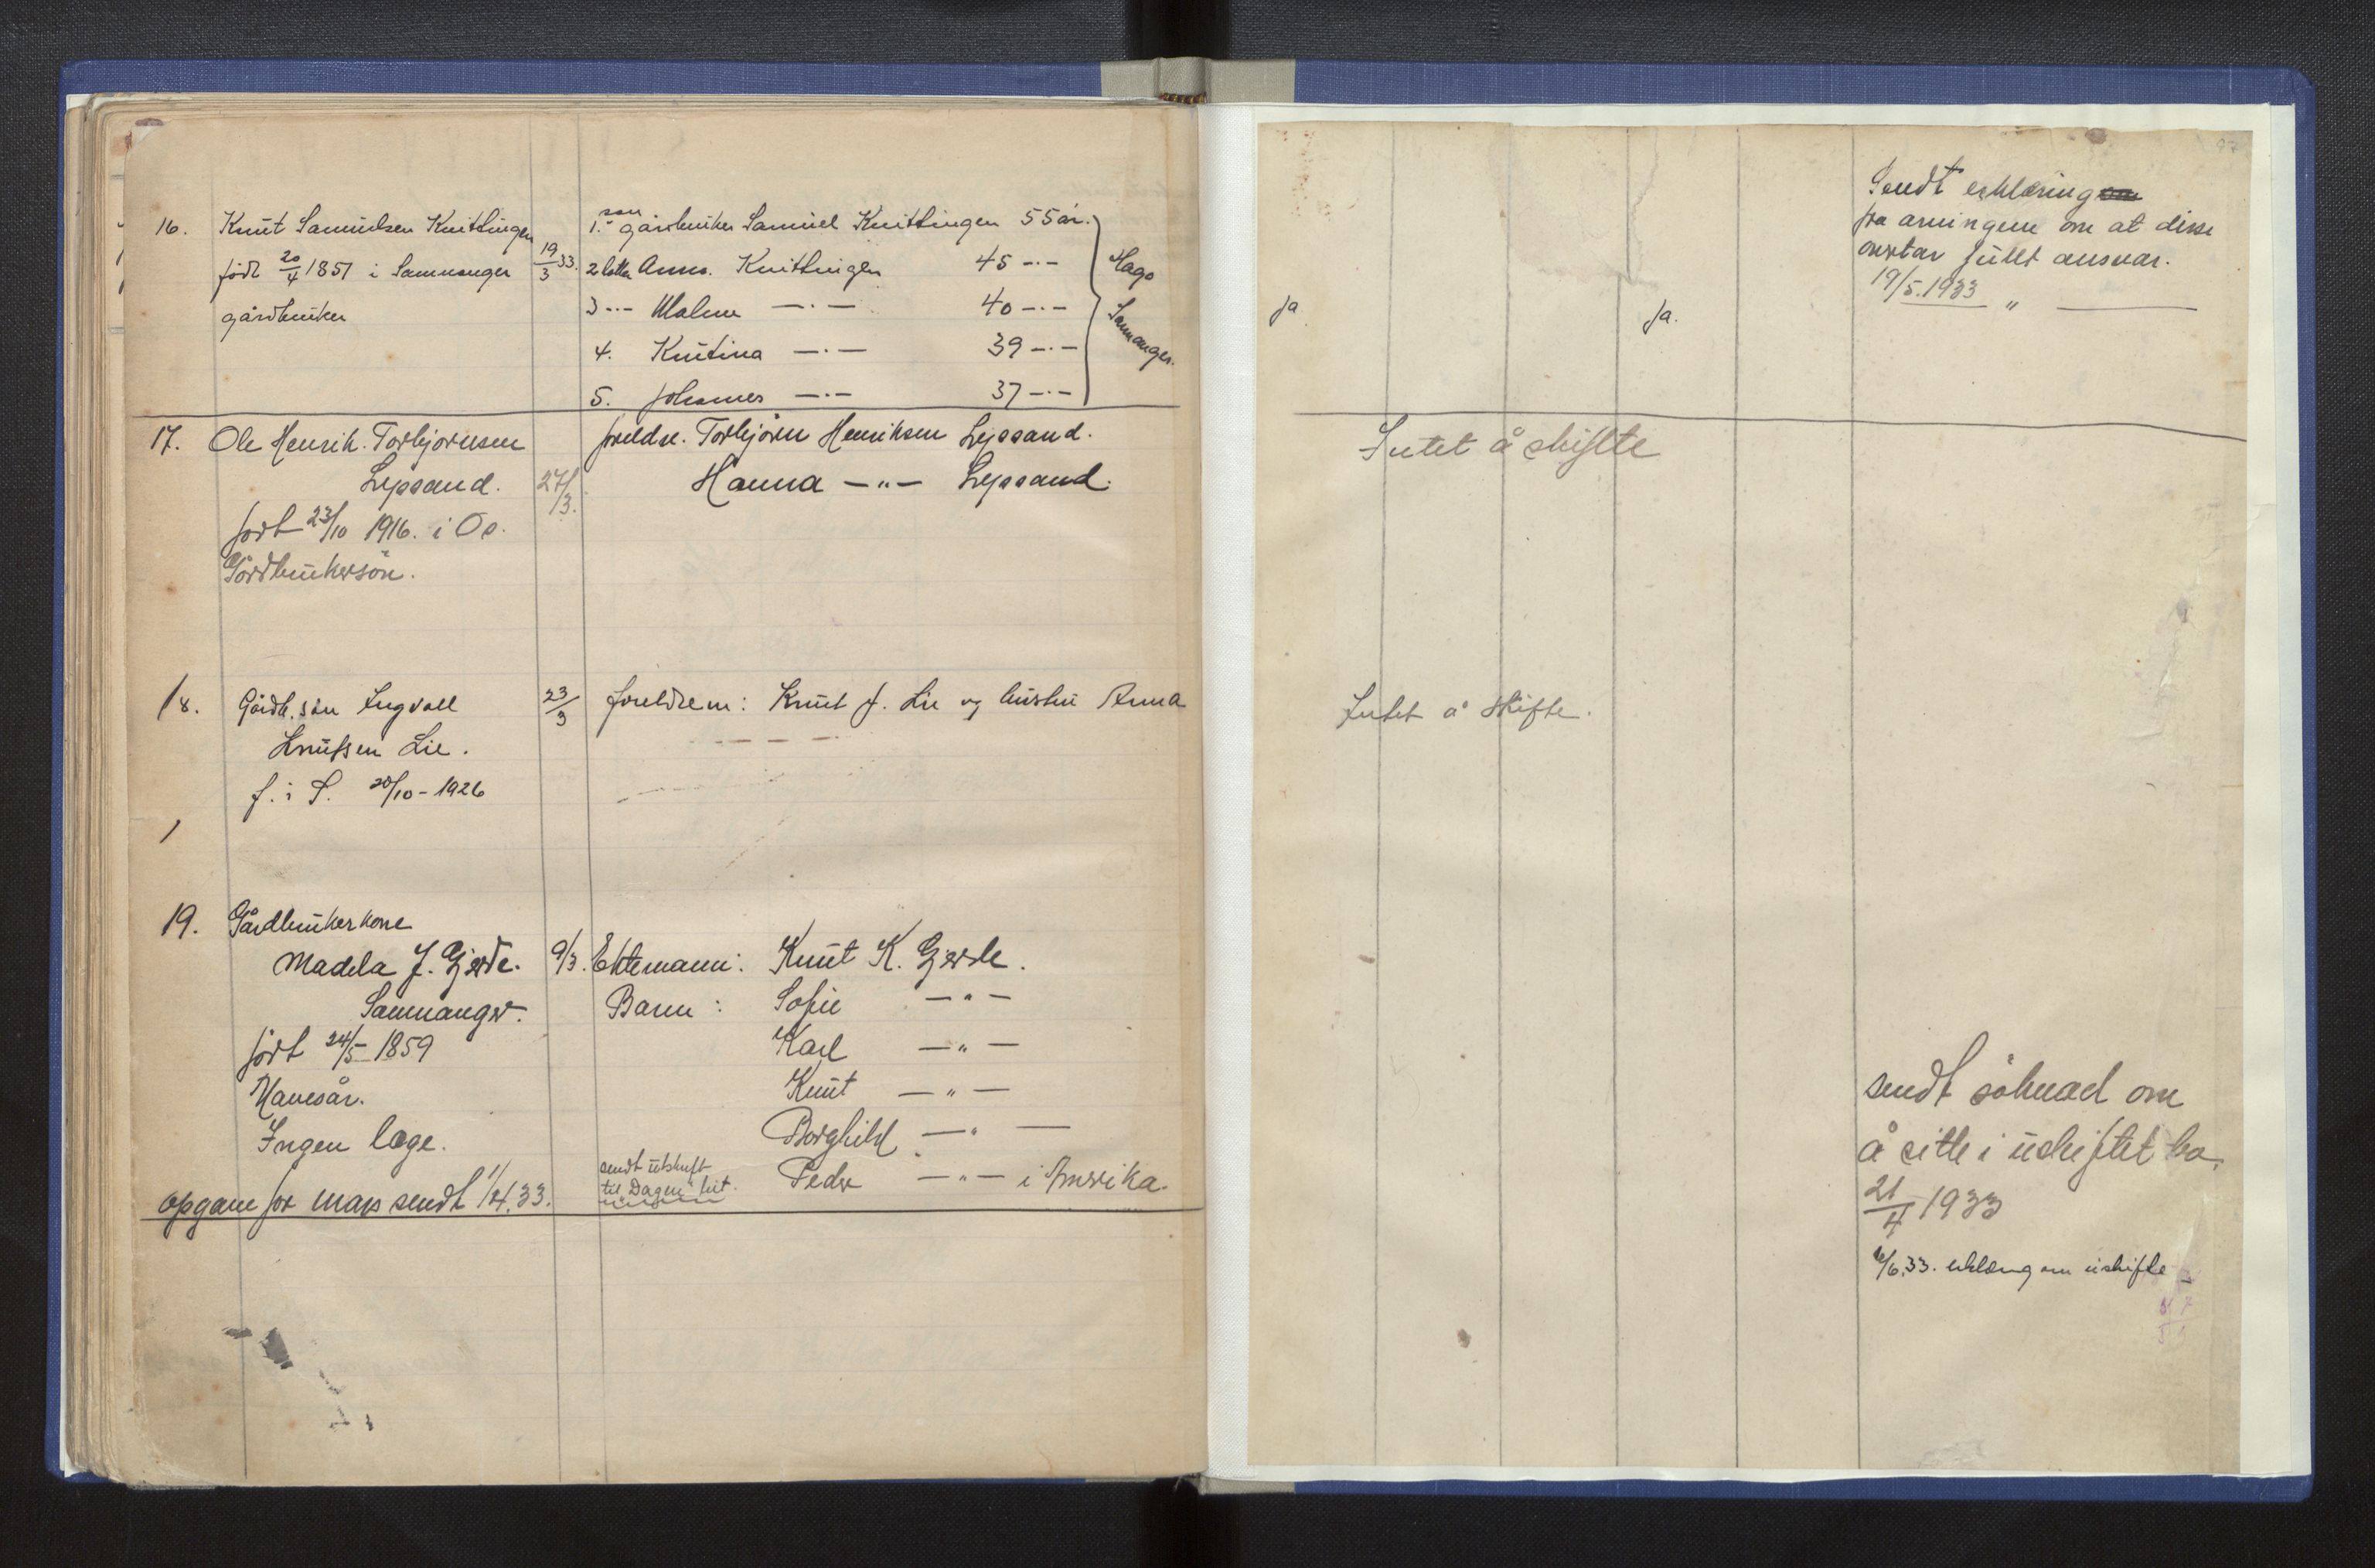 16. Knut Samuelsen Kvitlingen
født 20/4 1851 i Samnanger
gårdbruker
19/3 33.
1. søn gårdbruker Samuel Kvitlingen 55 år.
2 datter Anna. Kvitlingen 45 -"-
3 -"- Malene -"- 40 -"-
4. Kristina -"- 39 -"-
5. Johannes -"- 37 -"-
Hago
Samnanger.
17. Ole Henrik. Torbjørnsen
Lepsand.
født 23/10 1916. i Os.
Gårdbrukersøn.
27/3.
foreldre. Torbjørn Henriksen Lepsand.
Hanna -"- Lepsand.
18. Gårdb. søn Ingvald
Knutsen Lie.
f. i S. 20/10 - 1926
23/3
foreldrene: Knut J. Lie og hustru Anna
19. Gårdbrukerkone
Madela J. Gjerde.
Samnanger.
født 24/5 1859
Navesår.
Ingen læge.
opgave for mars sendt 1/4.33.
9/3.
Ektemann: Knut K. Gjerde.
Barn: Sofie -"-
Karl -"-
Knut -"-
Borghild -"-
Peder -"- i Amerika.
sendt utskrift
til "Dagen" hit.
ja
ja.
Sendt erklæring
fra arvingene om at disse
overtar fullt ansvar.
19/5.1933 "
Intet å skifte
Intet å skifte.
sendt søknad om
å sitte i uskiftet bo.
21/4 1933
6/6.33. erklæring om uskifte